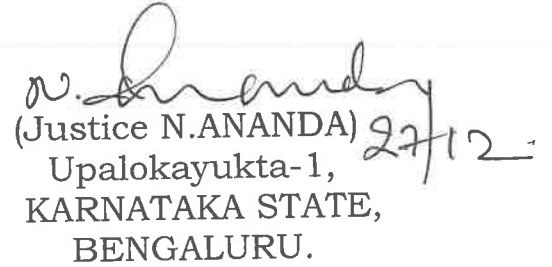 N. Ananda
(Justice N.ANANDA) 27/12
Upalokayukta-1,
KARNATAKA STATE,
BENGALURU.